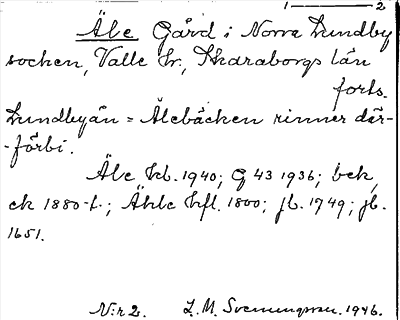 1 — 2
Åle Gård i Norra Lundby
socken, Valle hr., Skaraborgs län
forts.
Lundbyån = Ålebäcken rinner där-
-förbi.
Åle kb. 1940; G 43 1936; bek,
ek 1880-t.; Åhle hfl. 1800; jb. 1749; jb.
1651.
N:r 2. L. M. Svenungsson. 1946.